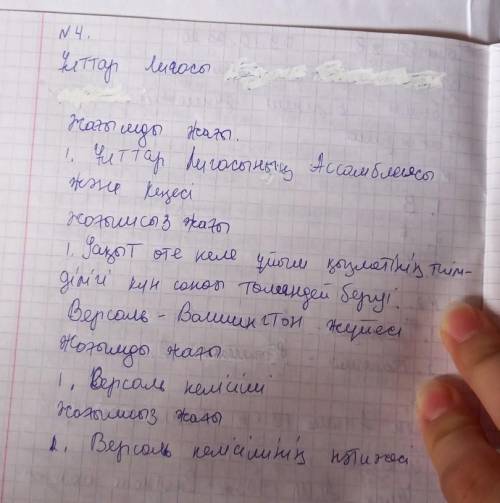 №4.
Ұлттар Лигасы
Жағымды жағы.
1. Ұлттар Лигасының Ассамблеясы
және Кеңесі
Жағымсыз жағы
1. Уақыт өте келе ұйым қызметінің тиім-
ділігі күн санап төмендей беруі.
Версаль - Вашингтон жүйесі
Жағымды жағы
1. Версаль келісімі
Жағымсыз жағы
1. Версаль келісімінің нәтижесі